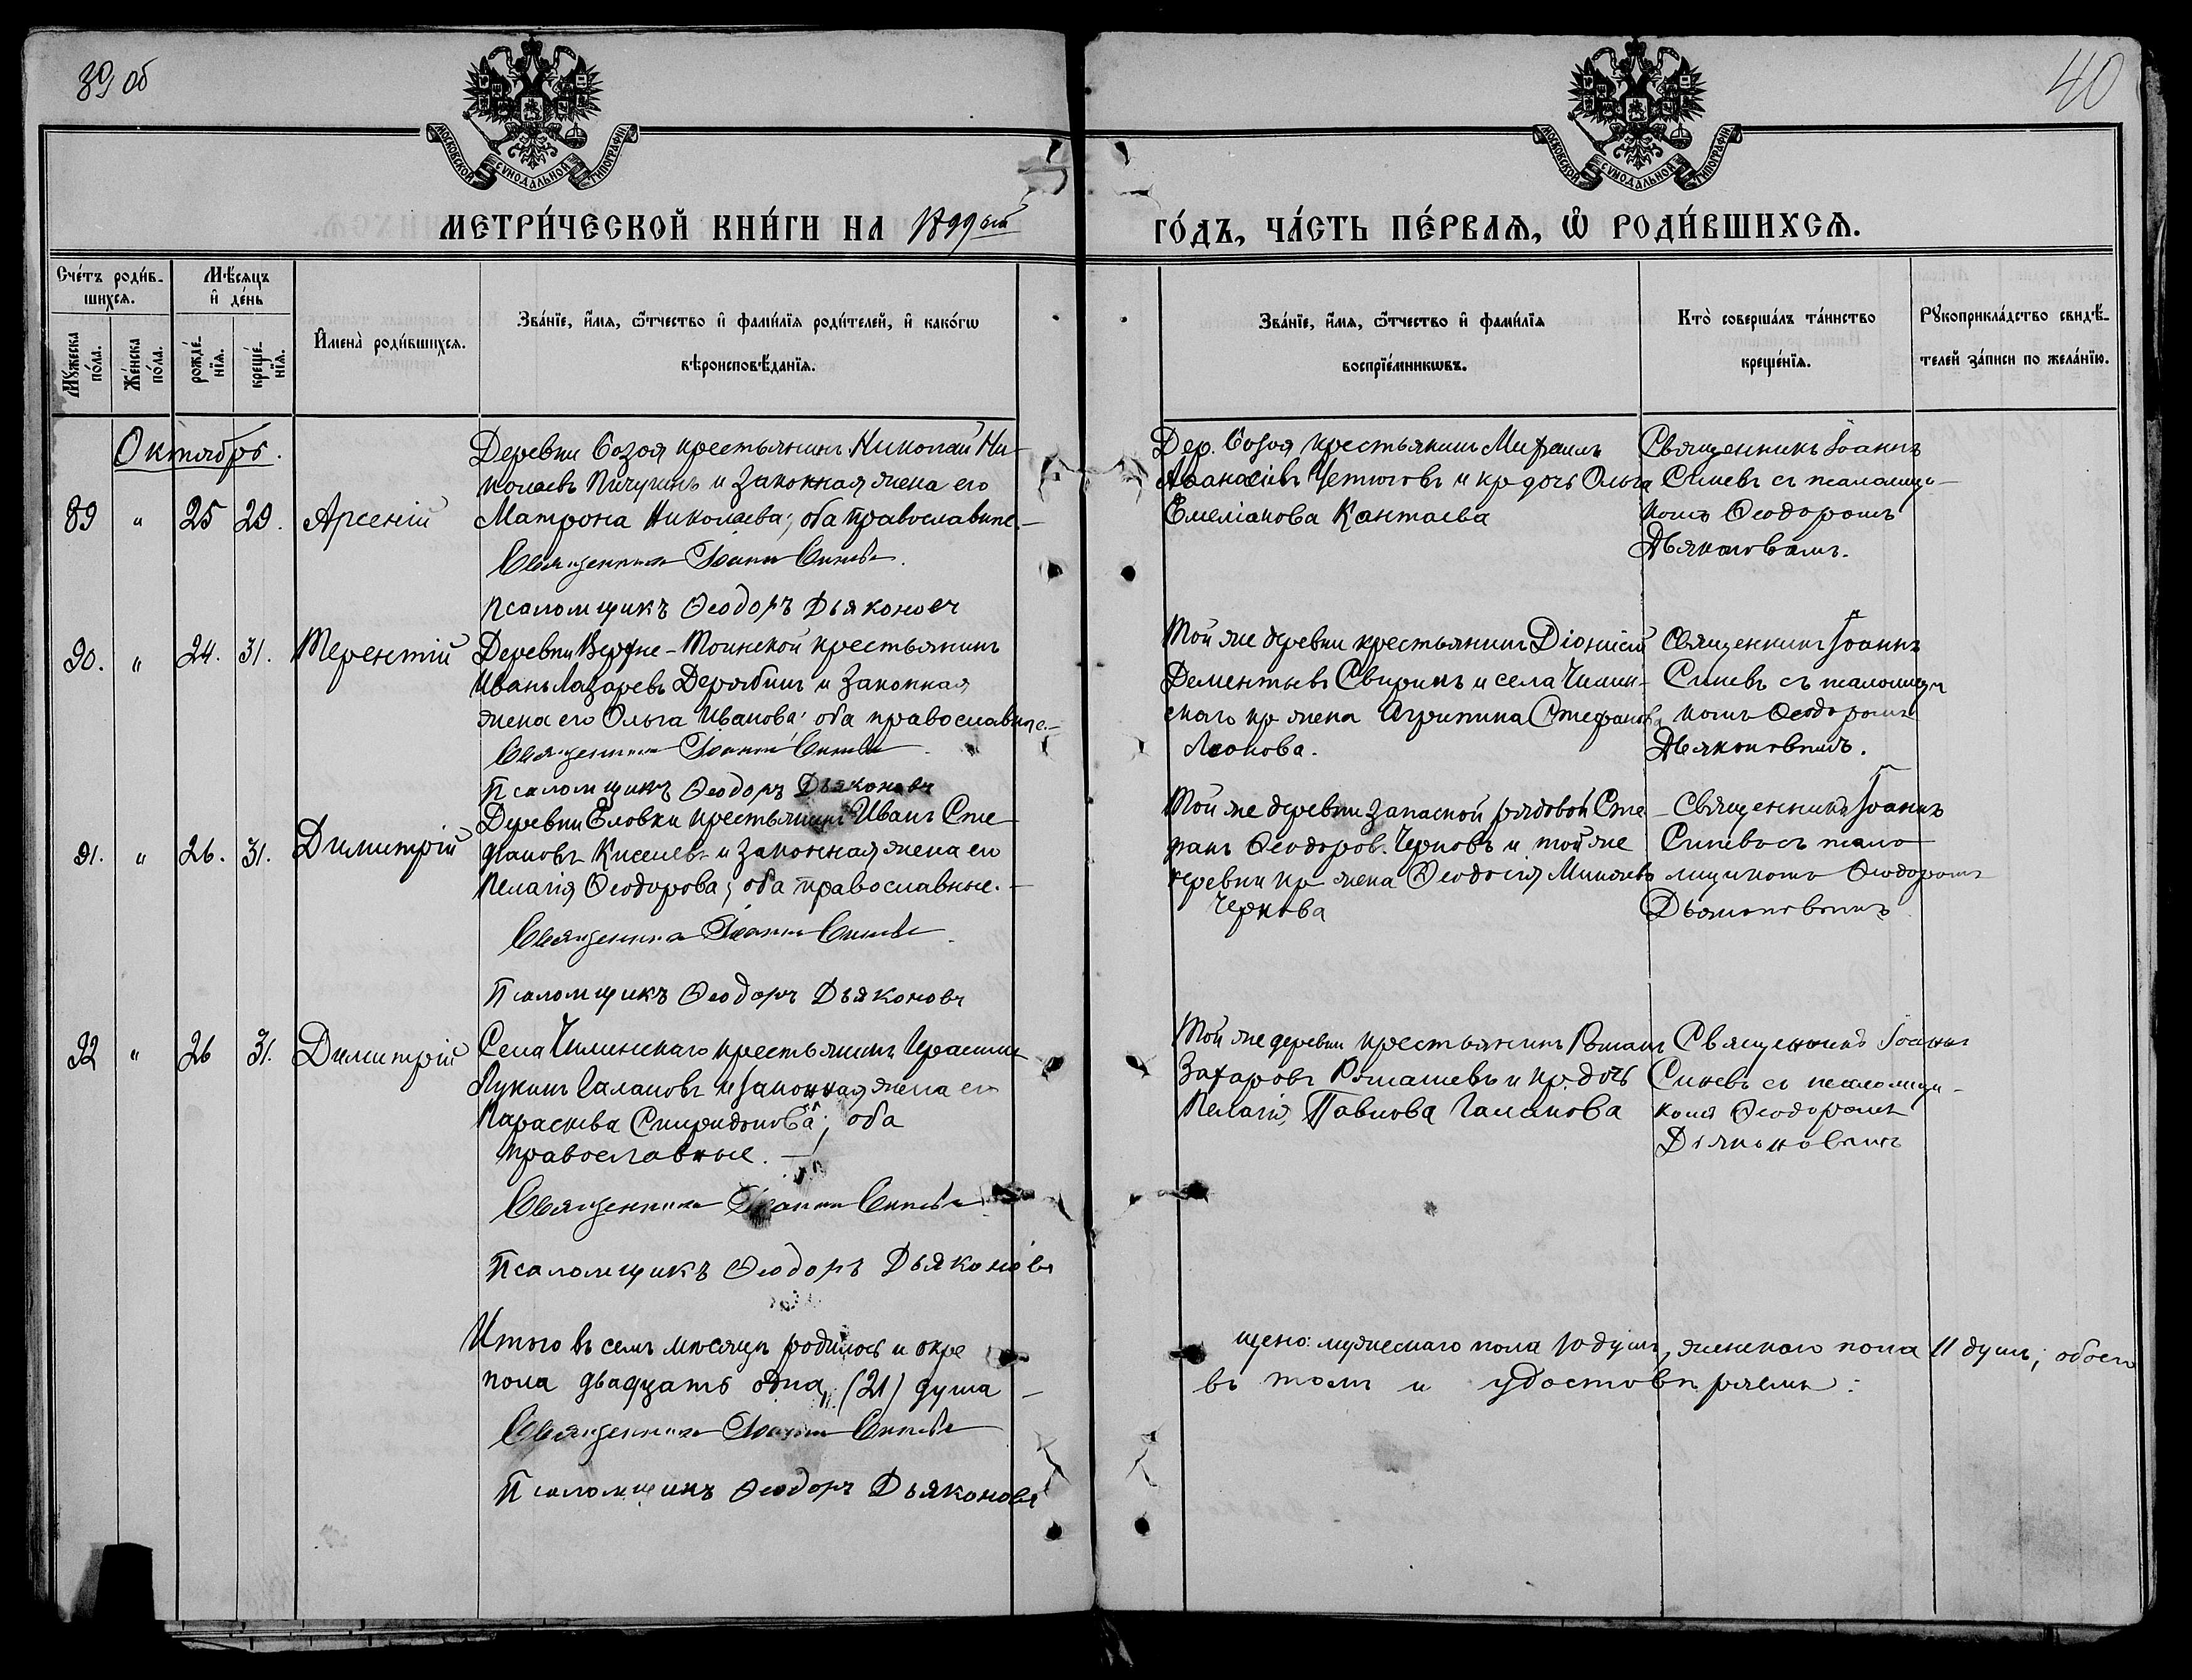 39 об
40
МОСКОВСКОЙ СѴНОДАЛЬНОЙ ТИПОГРАФІИ
МОСКОВСКОЙ СѴНОДАЛЬНОЙ ТИПОГРАФІИ
МЕТРИ́ЧЕСКОЙ КНИ́ГИ НА 1899 ый ГО́ДЪ, ЧА́СТЬ ПЕ́РВАѦ, Ѡ҆ РОДИ́ВШИХСѦ.
Сче́тъ роди́в-
шихсѧ.
Мꙋ́жеска по́ла.
Же́нска по́ла.
Мѣ́сѧцъ
и҆ де́нь
рожде́нїѧ.
креще́нїѧ.
И҆мена̀ роди́вшихсѧ.
Зва́нїе, и҆́мѧ, ѻ҆́тчество и҆ фами́лїѧ роди́телей, и҆ како́гѡ
вѣроисповѣ́данїѧ.
Зва́нїе, и҆́мѧ, ѻ҆́тчество и҆ фами́лїѧ
воспрїе́мникѡвъ.
Кто̀ соверша́лъ та́инство
креще́нїѧ.
Рꙋкоприкла́дство свидѣ́-
телей за́писи по жела́нїю.
Октябрь.
89 " 25 29. Арсеній
Деревни Созоя крестьянинъ Николай Ни-
колаевъ Пичугинъ и законная жена его
Матрона Николаева; оба православные.
Священникъ Іоаннъ Синевъ.
Псаломщикъ Ѳеодоръ Дьяконовъ
Дер. Созоя крестьянинъ Михаилъ
Аѳанасіевъ Четюговъ и кр дочь Ольга
Емеліанова Кантаева
Священникъ Іоаннъ
Синевъ съ псаломщи-
комъ Ѳеодоромъ
Дьяконовымъ.
90. " 24. 31. Терентій
Деревни Верхне-Тоинской крестьянинъ
Иванъ Лазаревъ Дерябинъ и законная
жена его Ольга Иванова; оба православные.
Священникъ Іоаннъ Синевъ
Псаломщикъ Ѳеодоръ Дьяконовъ
Той же деревни крестьянинъ Діонисій
Дементьевъ Свиринъ и села Чилин-
скаго кр жена Агрипина Стефанова
Леонова.
Священникъ Іоаннъ
Синевъ съ псаломщи
комъ Ѳеодоромъ
Дьяконовымъ.
91. " 26. 31. Димитрій
Деревни Еловки крестьянинъ Иванъ Сте
фановъ Киселевъ и законная жена его
Пелагія Ѳеодорова; оба православные.
Священникъ Іоаннъ Синевъ
Псаломщикъ Ѳеодоръ Дьяконовъ
Той же деревни запасной рядовой Сте
фанъ Ѳеодоров. Черновъ и той же
деревни кр жена Ѳеодосія
Чернова
Священникъ Іоаннъ
Синевъ съ псало
мщикомъ Ѳеодоромъ
Дьяконовымъ
92 " 26 31. Димитрій
Села Чилинскаго крестьянинъ Герасимъ
Лукинъ Галановъ и законная жена его
Параскева Спиридонова; оба
православные.
Священникъ Іоаннъ Синевъ
Псаломщикъ Ѳеодоръ Дьяконовъ
Той же деревни крестьянинъ Романъ
Захаровъ и кр. дочь
Пелагія Павлова Галанова
Священникъ Іоаннъ
Синевъ съ псаломщи-
комъ Ѳеодоромъ
Дьяконовымъ
Итого въ семъ мѣсяцѣ родилось и окре щено: мужескаго пола 10 душъ, женскаго пола 11 душъ; обоего
пола двадцать одна (21) душа – въ томъ и удостовѣряемъ:
Священникъ Іоаннъ Синевъ
Псаломщикъ Ѳеодоръ Дьяконовъ